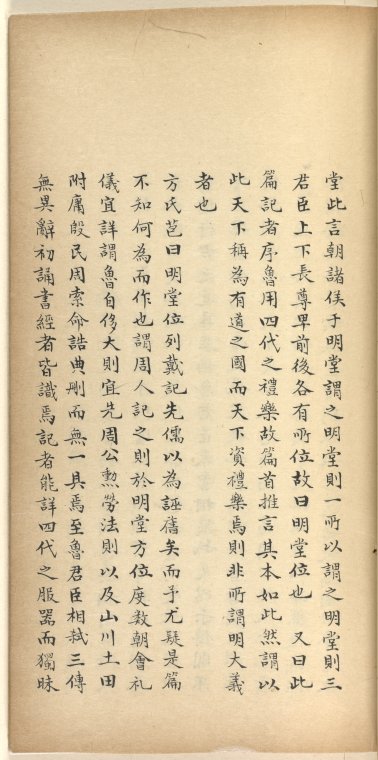 堂此言朝諸侯于明堂謂之明堂則一所以謂之明堂則三
君臣上下長尊卑前後各有所位故曰明堂位也又曰此
篇記者序魯用四代之禮樂故篇首推言其本如此然謂以
此天下稱為有道之國而天下資禮樂焉則非所謂明大義
者也
方氏苞曰明堂位列戴記先儒以為誣舊矣而予尤疑是篇
不知何為而作也謂周人記之則於明堂方位度数朝會礼
儀宜詳謂魯自侈大則宜先周公勲勞法則以及山川土田
附庸殷民周索命誥典刪而無一具焉至魯君臣相弒三傳
無異辭初誦書經者皆識焉記者能詳四代之服器而獨昧